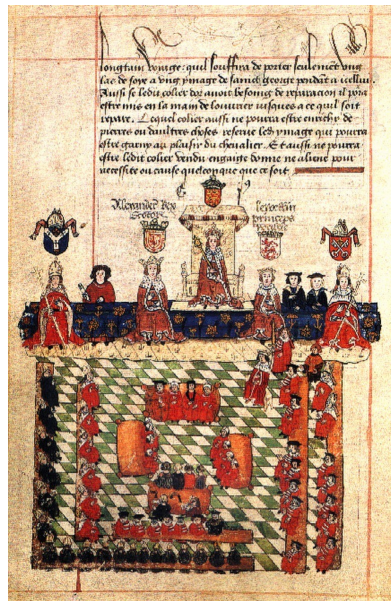 longtain voyage: quil souffira de porter seulement ung
lac de soye a ung ymage de sainct george pendāt a icellui.
Aussi se ledit colier dor auoit besoing de reparacion il pora
estre mis en la main de louurier iusques a ce quil soit
repare. Lequel colier aussi ne pourra estre enrichy de
pierres ou daultres choses reserue led ymage qui pourra
estre garny au plaisir du cheualier. Et aussi ne pourra
estre ledit colier vendu engaige donne ne aliene pour
necessite ou cause quelconque que ce soit
Alexander Rex
princeps